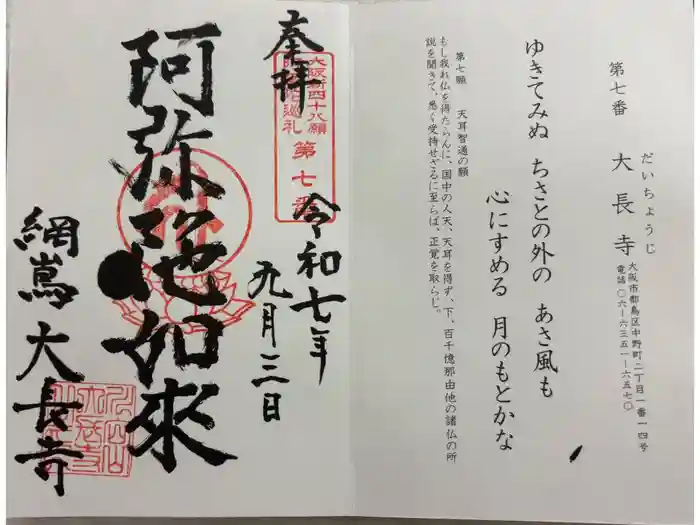 第七番
だいちょうじ
大長寺
大阪市都島区中野町二丁目一番一四号
電話〇六ー六三五一ー六五七〇
ゆきてみぬ ちさとの外の あさ風も
心にすめる 月のもとかな
第七願 天耳智通の願
もし我れ仏を得たらんに、国中の人天、天耳を得ず、下、百千億那由他の諸仏の所
説を聞きて、悉く受持せざるに至らば、正覚を取らじ。
奉拝
大阪新四十八願
阿弥陀巡礼
第七番
令和七年
九月三日
阿弥陀如来
網嶌 大長寺